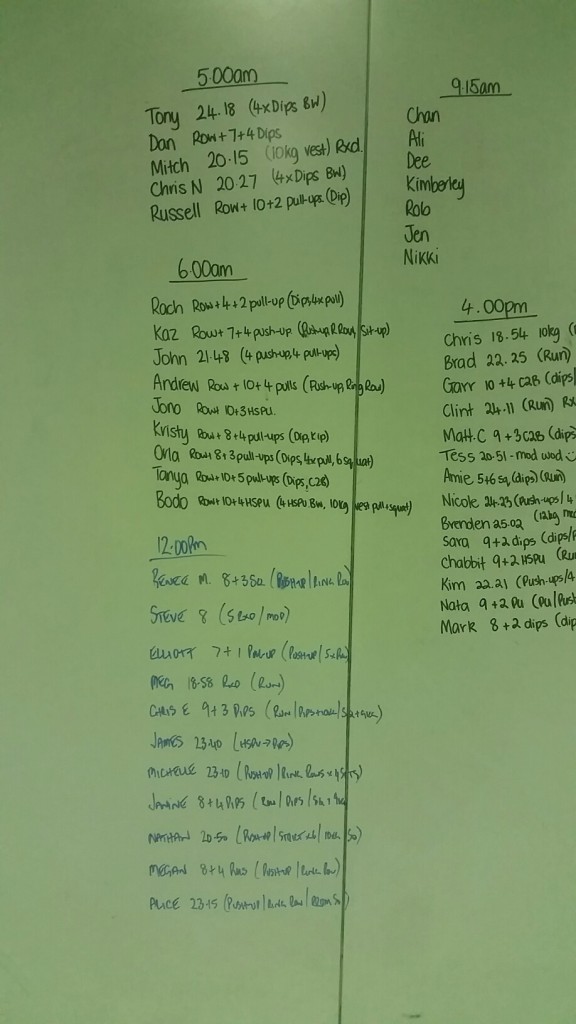 5.00am
Tony 24.18 (4xDips BW)
Dan Row+7+4 Dips
Mitch 20.15 (10kg vest) Rxd.
Chris N 20.27 (4xDips BW)
Russell Row+ 10+2 pull-ups (Dip)
6.00am
Rach Row+4+2 pull-up (Dips,4x pull)
Kaz Row+7+4 push-up Sit-up)
John 21.48 (4 push-up, 4 pull-ups)
Andrew Row + 10+4 pulls (Push-up, Ring Row)
Jono Row+ 10+3HSPU.
Kristy Row+8+4 pull-ups (Dip, Kip)
Orla Row+8+3 pull-ups (Dips, 4x pull, 6 squat)
Tanya Row+10+5 pull-ups (Dips, C2B)
Bodo Row+10+4HSPU (4 HSPU BW, 10kg vest pull+squat)
12.00pm
RENEE M. 8+3 (PUSH-UP/RING ROW
STEVE 8
ELLIOTT 7+1 PULL-UP (PUSH-UP/
MEG 18.58 RXD (RUN)
CHRIS E 9+3 DIPS (RUN/
JAMES 23.40 (HSPU→DIPS)
MICHELLE 23.10 (PUSH-UP/RING ROWS
JANINE 8+4 DIPS
NATHAN 20.50 (PUSH-UP/
MEGAN 8+4 (PUSH-UP/RING ROW)
ALICE 23.15 (PUSH-UP/RING ROW/
9.15am
Chan
Ali
Dee
Kimberley
Rob
Jen
Nikki
4.00pm
Chris 18.54 10kg (
Brad 22.25 (Run)
Garr 10+4 C2B (dips/
Clint 24.11 (Run) Rx
Matt.C 9+3 C2B (dips
Tess 20.51 - mod wod
Amie 5+6 sq (dips) (Run)
Nicole 24.23 (Push-ups/4
Brenden 25.02 (12kg
Sara 9+2 dips (dips/
Chabbit 9+2 HSPU (Ru
Kim 22.21 (Push-ups/4
Nata 9+2 Pu (Pu/Push
Mark 8+2 dips (dip